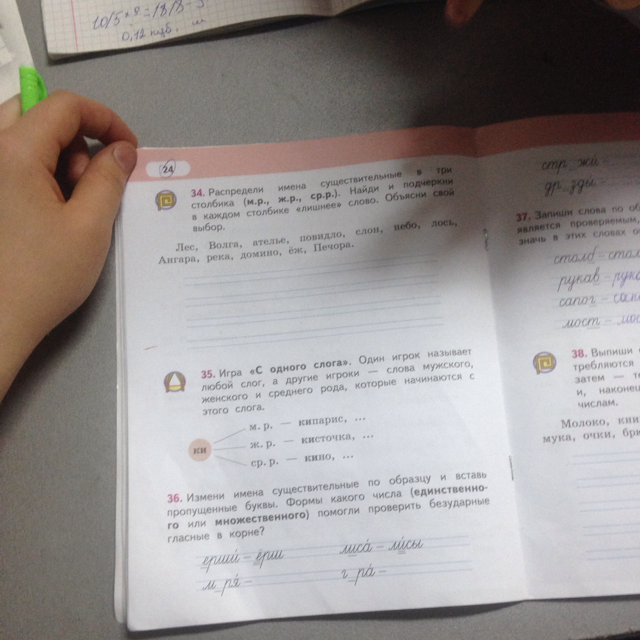 0,12 куб. м
24
34. Распредели имена существительные в три
столбика (м.р., ж.р., ср.р.). Найди и подчеркни
в каждом столбике «лишнее» слово. Объясни свой
выбор.
Лес, Волга, ателье, повидло, слон, небо, лось,
Ангара, река, домино, ёж, Печора.
35. Игра «С одного слога». Один игрок называет
любой слог, а другие игроки — слова мужского,
женского и среднего рода, которые начинаются с
этого слога.
ки
м. р. — кипарис, ...
ж. р. — кисточка, ...
ср. р. — кино, ...
36. Измени имена существительные по образцу и вставь
пропущенные буквы. Формы какого числа (единственно-
го или множественного) помогли проверить безударные
гласные в корне?
ерши́ – ёрши лиса́ – ли́сы
м_ря́ – г_ра́ –
стр_жи –
др_зды –
37. Запиши слова по об
является проверяемым,
значь в этих словах о
столб – стол
рукав – рука
сапог – сап
мост – мос
38. Выпиши
требляются
затем — т
и, наконец
числам.
Молоко, кни
мука, очки, бри